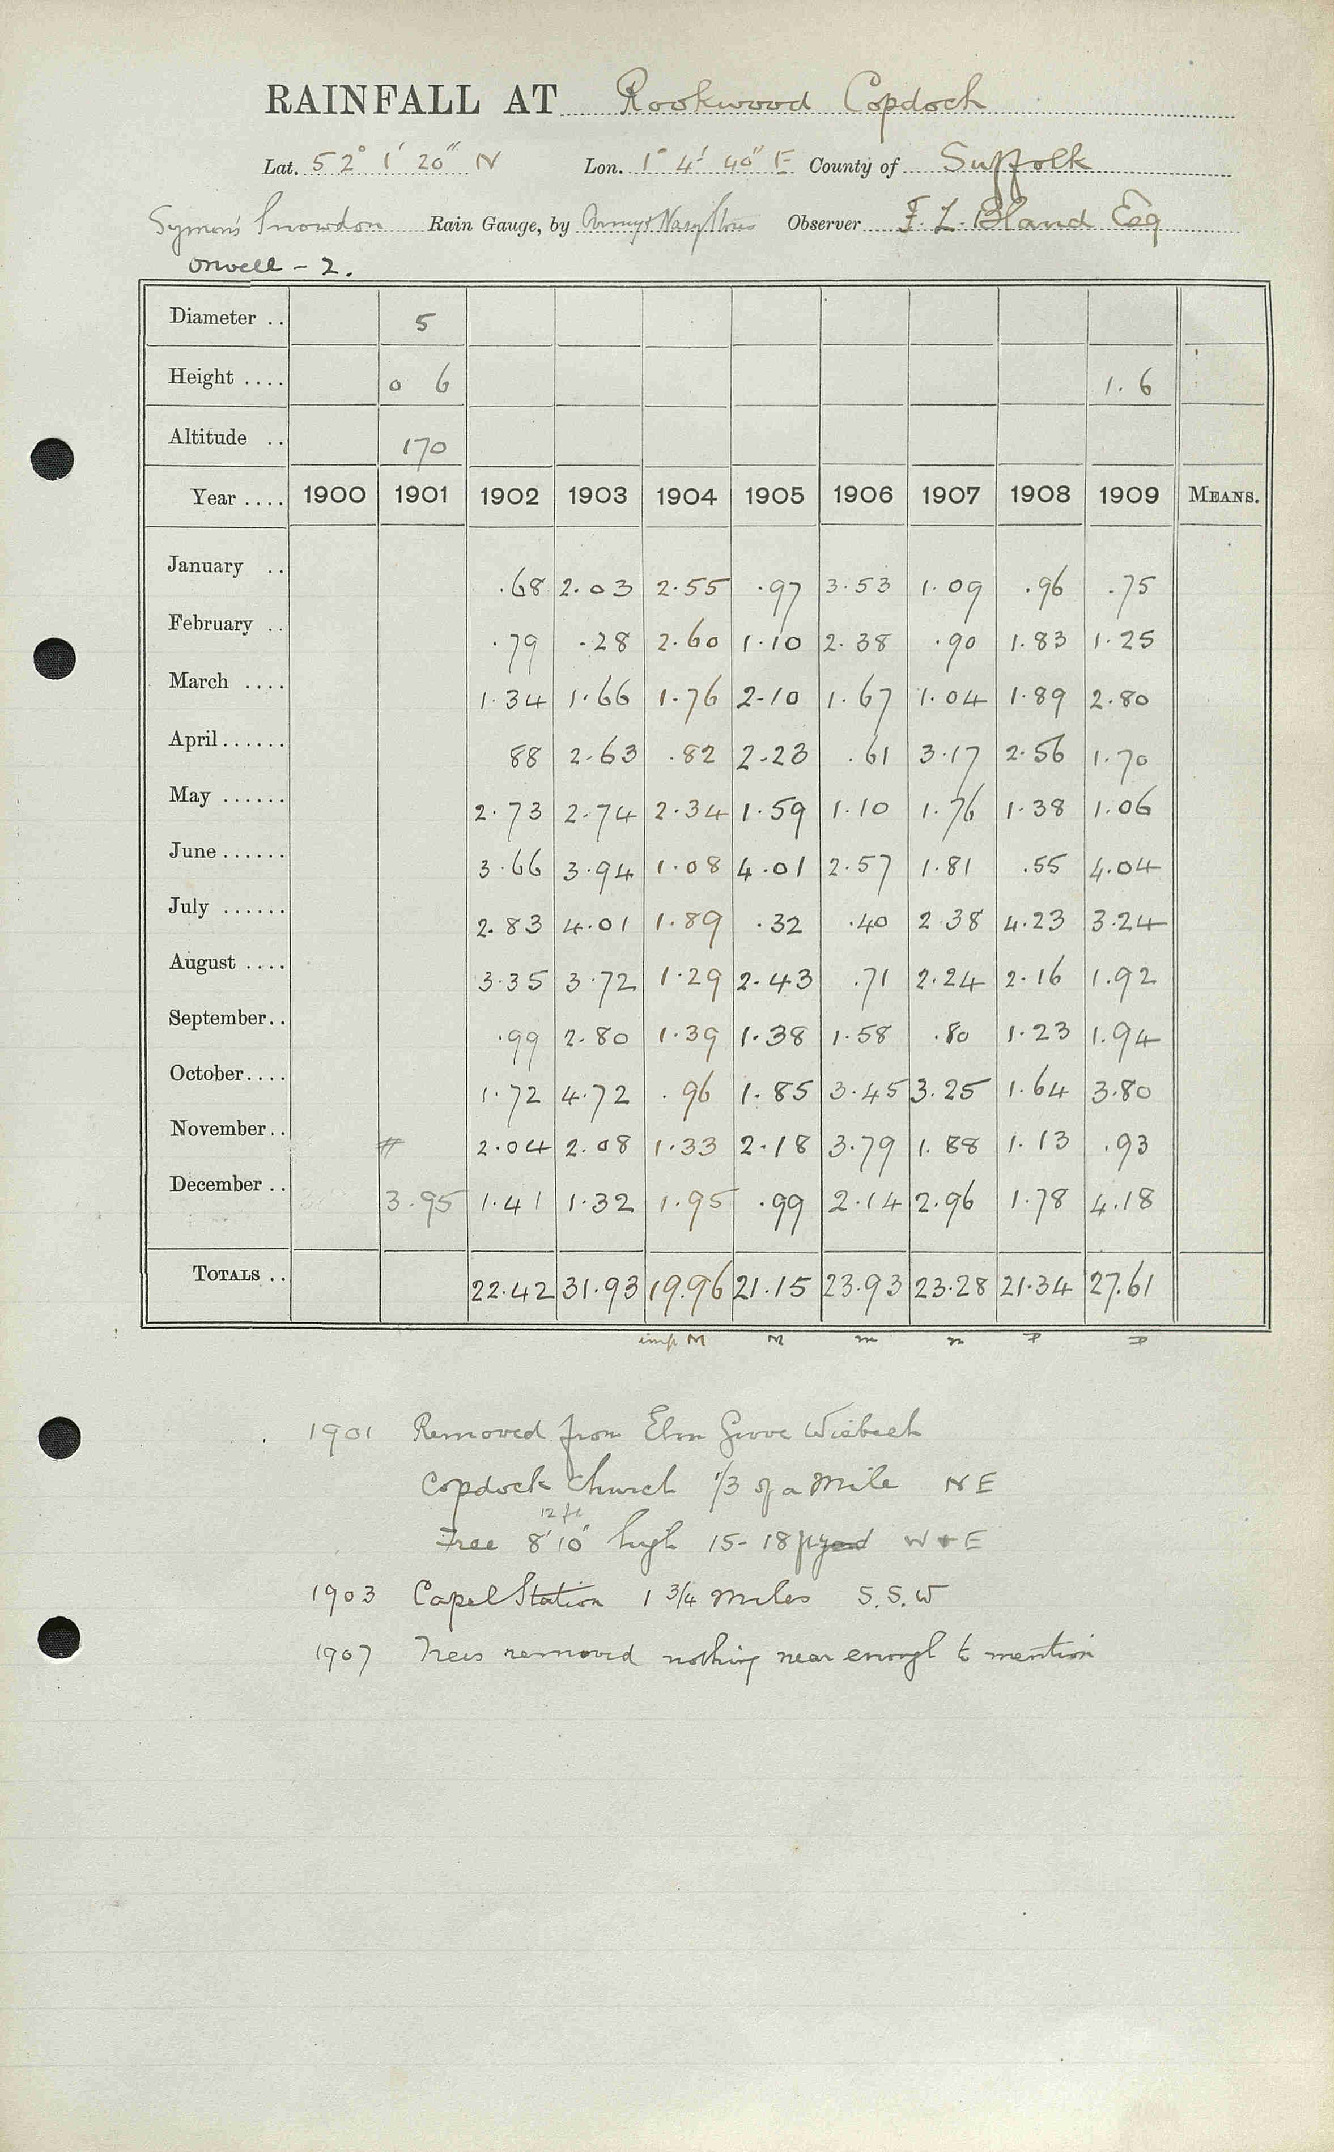 RAINFALL AT Rookwood Copdock
Lat. 52° 1' 20" N Lon. 1° 4' 40" E County of Suffolk
Symons Snowdon Rain Gauge, by Army & Navy Stores Observer F. L. Bland Esq
Orwell - 2.
Diameter .. 5
Height .... 0 6 1. 6
Altitude .. 170
Year .... 1900 1901 1902 1903 1904 1905 1906 1907 1908 1909 MEANS.
January .. .68 2.03 2.55 .97 3.53 1.09 .96 .75
February .. .79 .28 2.60 1.10 2.38 .90 1.83 1.25
March .... 1.34 1.66 1.76 2.10 1.67 1.04 1.89 2.80
April ...... 88 2.63 .82 2.23 .61 3.17 2.56 1.70
May ...... 2.73 2.74 2.34 1.59 1.10 1.76 1.38 1.06
June ...... 3.66 3.94 1.08 4.01 2.57 1.81 .55 4.04
July ...... 2.83 4.01 1.89 .32 .40 2.38 4.23 3.24
August .... 3.35 3.72 1.29 2.43 .71 2.24 2.16 1.92
September .. .99 2.80 1.39 1.38 1.58 .80 1.23 1.94
October .... 1.72 4.72 .96 1.85 3.45 3.25 1.64 3.80
November .. # 2.04 2.08 1.33 2.18 3.79 1.88 1.13 .93
December .. 3.95 1.41 1.32 1.95 .99 2.14 2.96 1.78 4.18
TOTALS .. 22.42 31.93 19.96 21.15 23.93 23.28 21.34 27.61
imp M M m m P P
1901 Removed from Elm Grove Wisbech
Copdock Church 1/3 of a Mile NE
12 ft
Tree 8' 10" high 15-18 W + E
1903 Capel Station 1 3/4 miles S.S.W
1907 Trees removed nothing near enough to mention